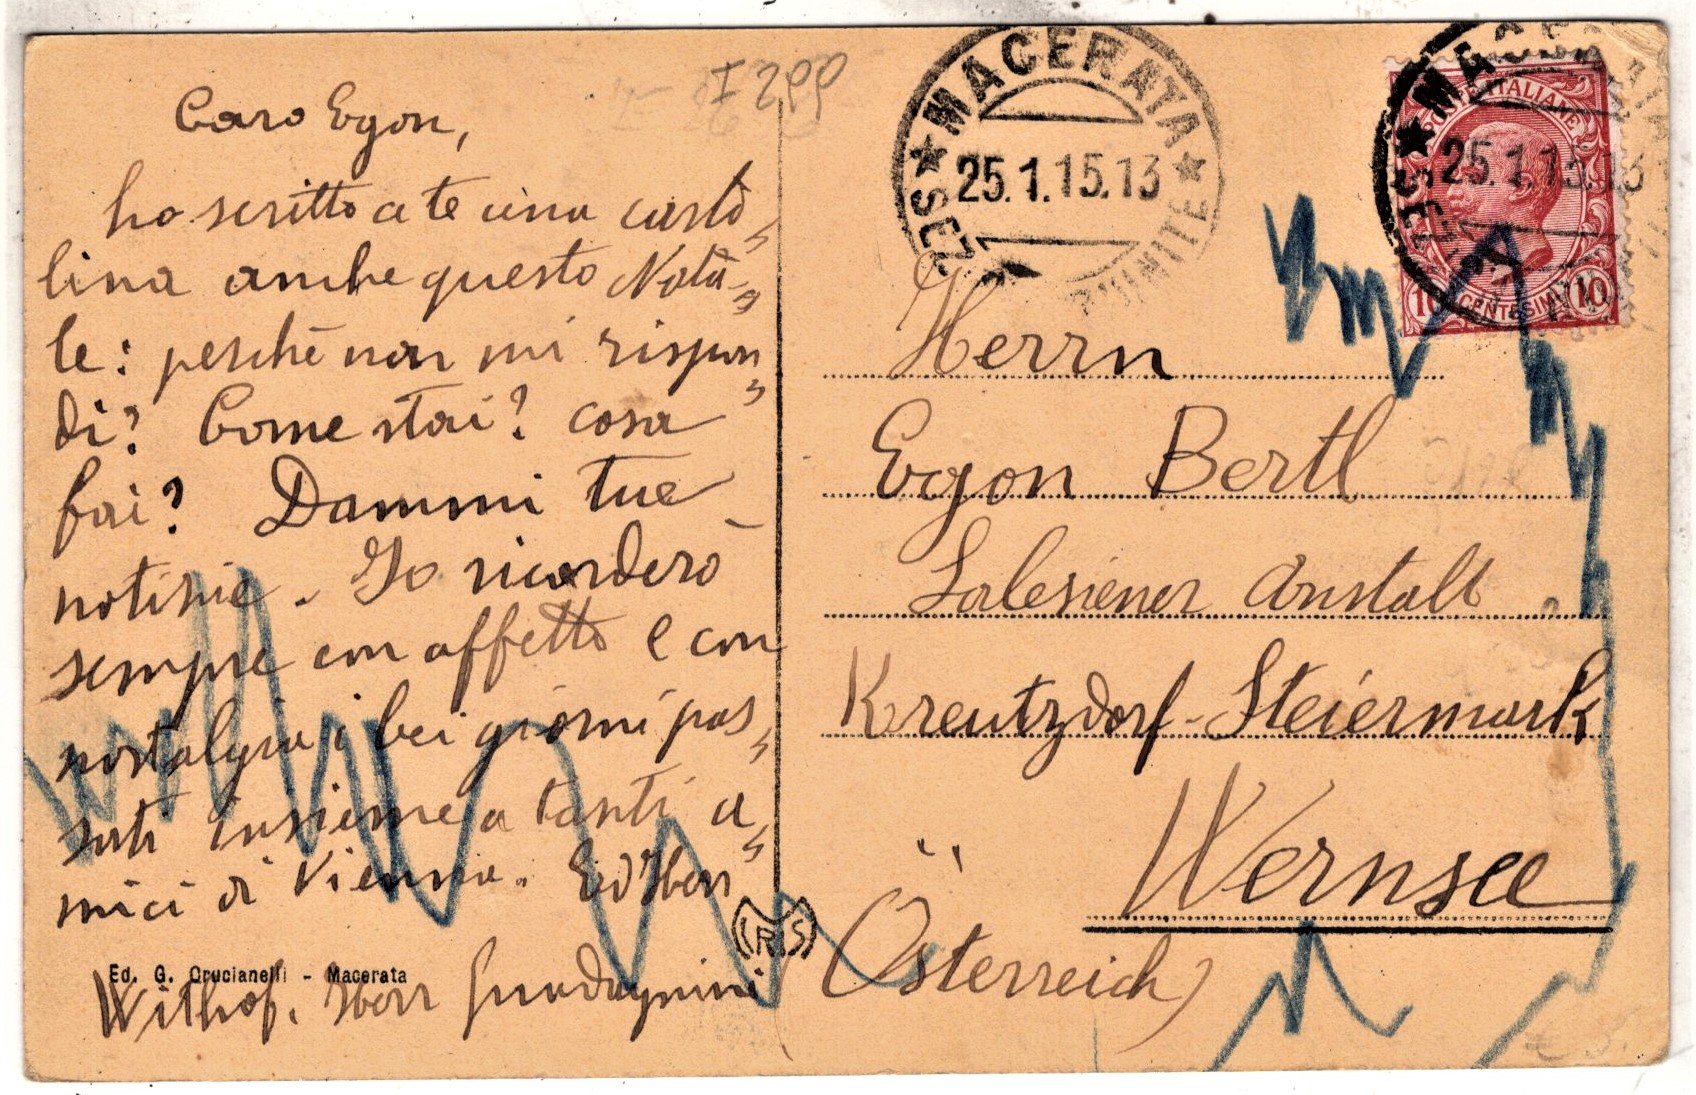 Caro Egon,
ho scritto a te una carto„
lina anche questo Nata„
le: perchè non mi rispon„
di? Come stai? cosa
fai? Dammi tue
notizie. Io ricorderò
sempre con affetto e con
nostalgia i bei giorni pas„
sati insieme a tanti a„
mici di Vienna. Ed Herr
Withof. Herr Guadagnini
Ed. G. Crucianelli - Macerata
IRIS
MACERATA
25.1.15.13
SEZ
POSTE ITALIANE
25.1.15.13
10 CENTESIMI 10
Herrn
Egon Bertl
Salesiener Anstalt
Kreutzdorf - Steiermark
Wernsee
(Österreich)